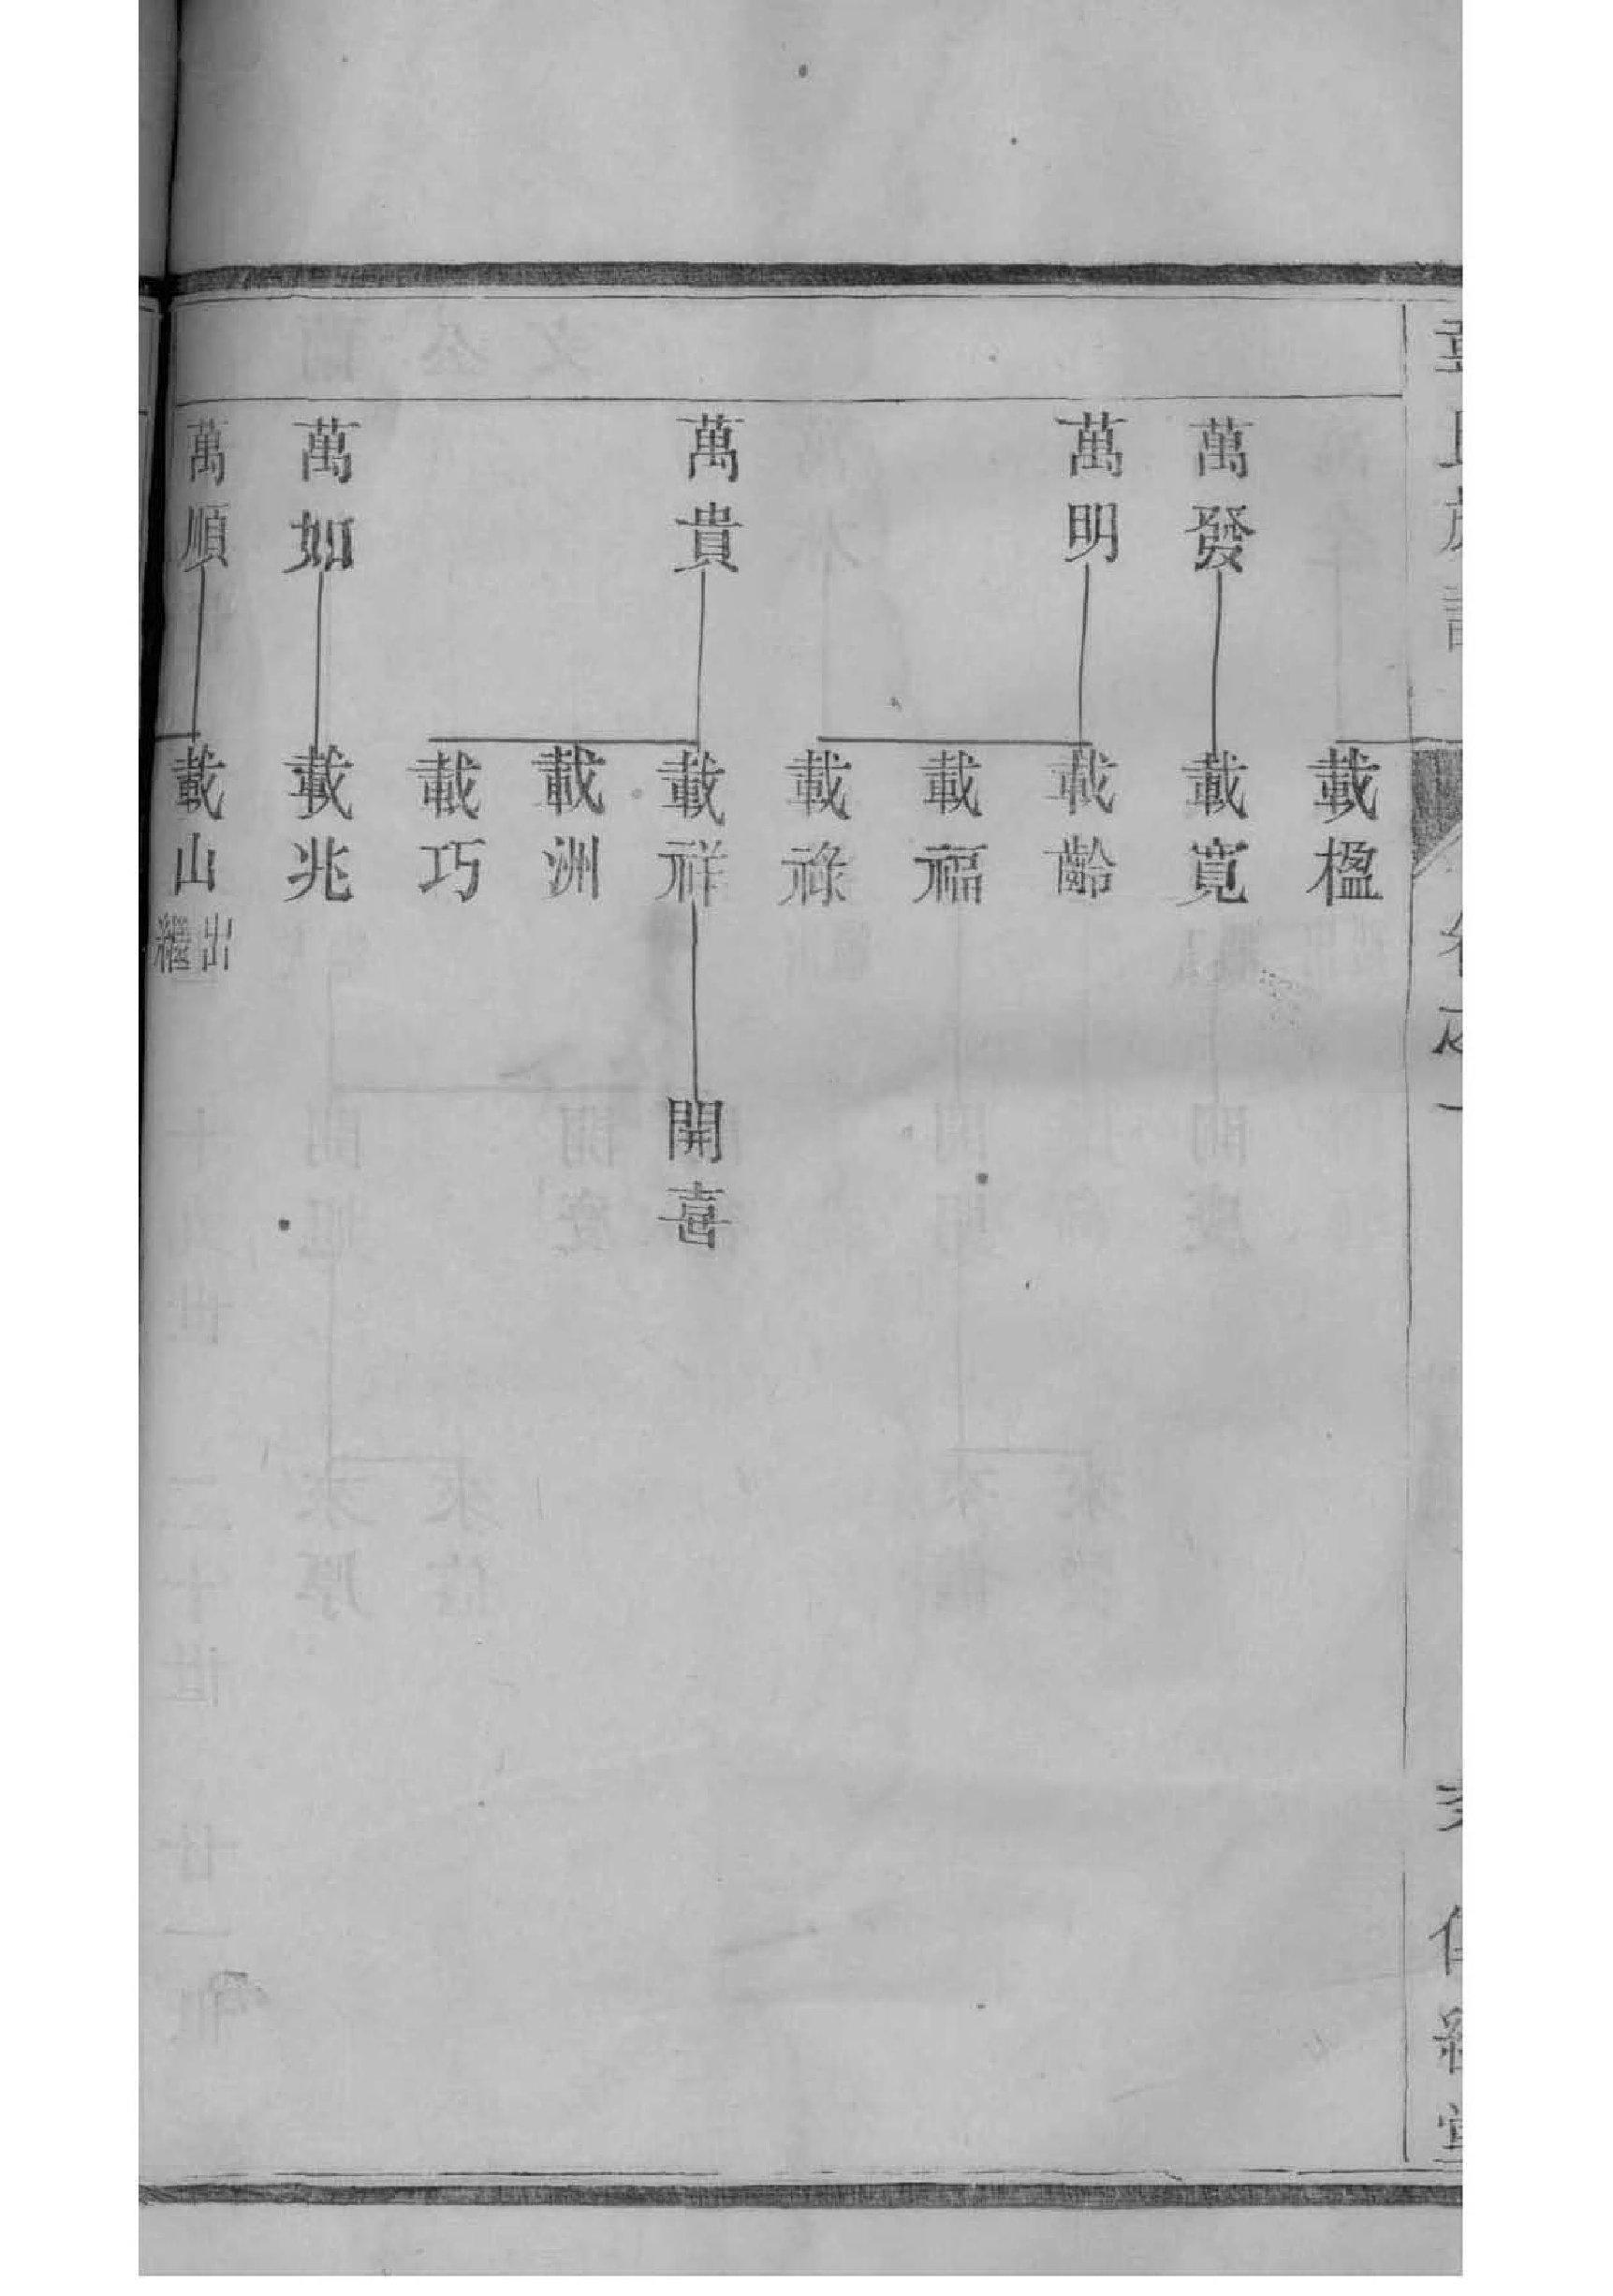 萬發
萬明
萬貴
萬如
萬順
載楹
載寬
載齡
載福
載祿
載祥
載洲
載巧
載兆
載山出繼
開喜